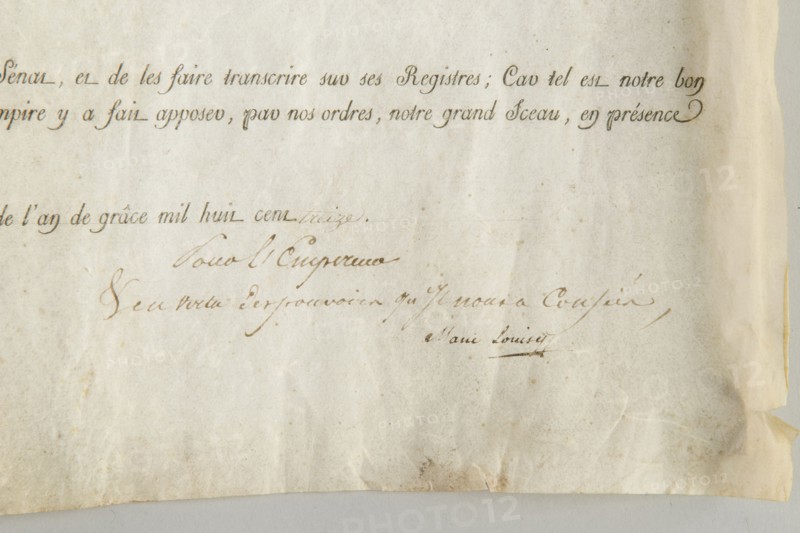 Sénat, et de les faire transcrire sur ses Registres; Car tel est notre bon
mpire y a fait apposer, par nos ordres, notre grand Sceau, en présence
de l'an de grâce mil huit cent treize.
Pour l'Empereur
& en vertu des pouvoirs qu'Il nous a Confiés,
Marie Louise
PHOTO12